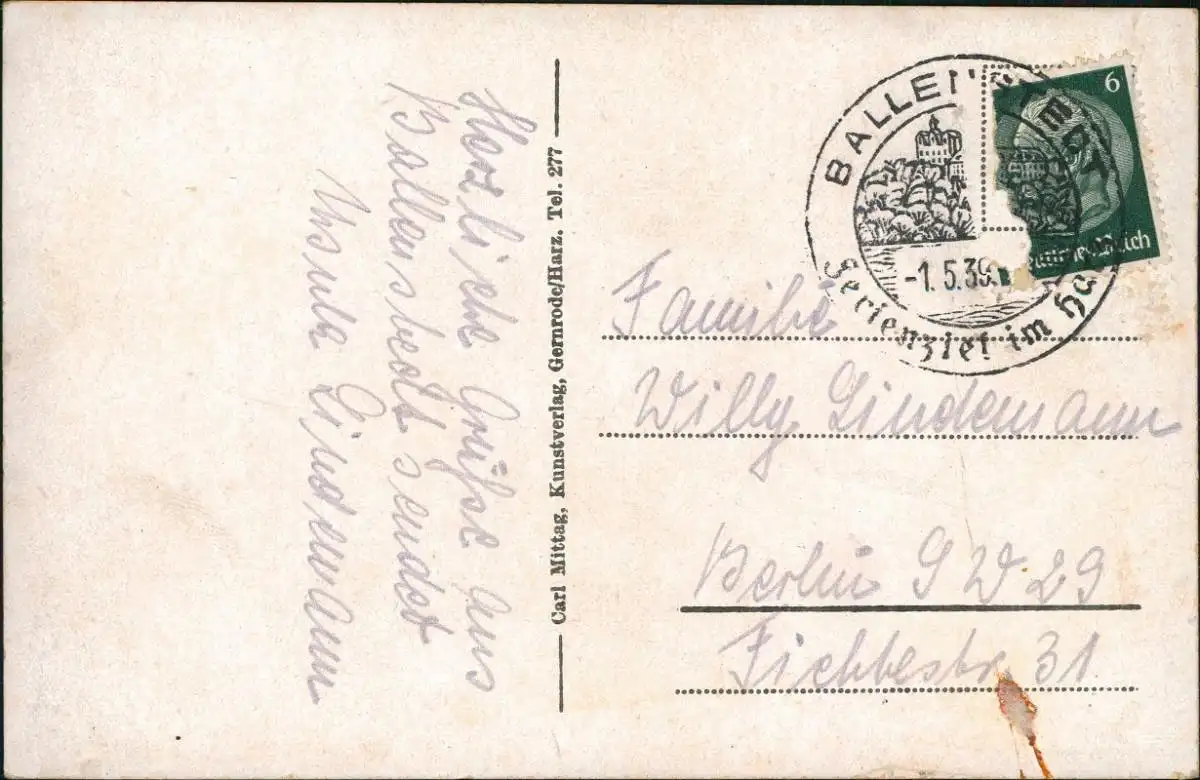 Herzliche Grüße aus
Ballenstedt sendet
Lindemann
Carl Mittag, Kunstverlag, Gernrode/Harz. Tel. 277
BALLENSTEDT
-1.5.39.
Ferienziel im Ha
6
Reich
Familie
Willy Lindemann
Berlin SW 29
Fichtestr. 31.